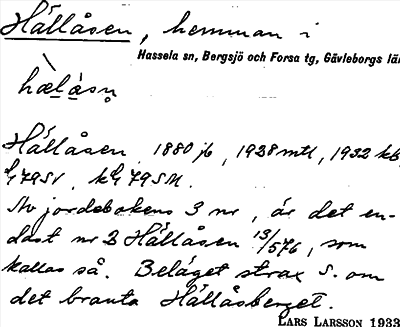 Hällåsen, hemman i
Hassela sn, Bergsjö och Forsa tg, Gävleborgs län
hælåsn̥
Hällåsen 1880 jb, 1928 mtl, 1932 kb,
G79SV, kG79SM.
Av jordebokens 3 nr, är det en-
dast nr 2 Hällåsen 13/576, som
kallas så. Beläget strax S. om
det branta Hällåsberget.
LARS LARSSON 1933